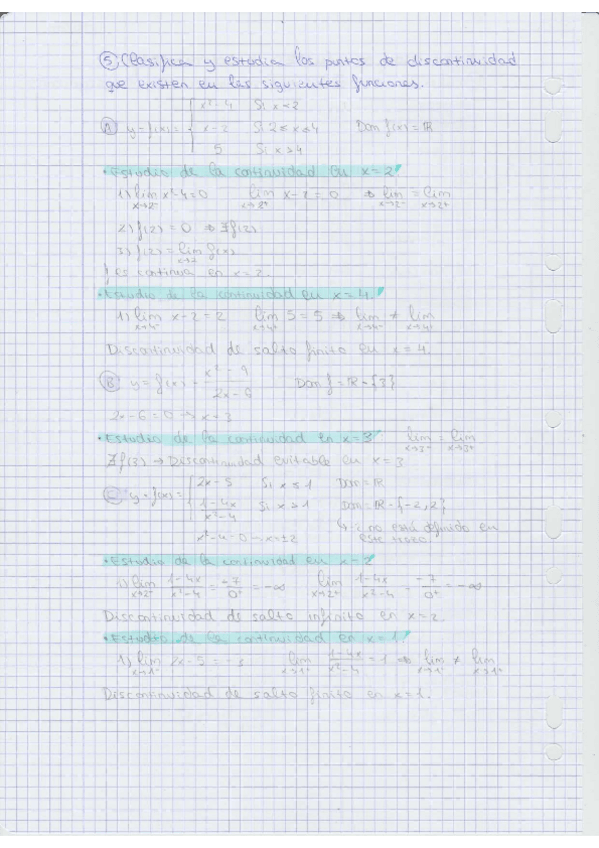 ⑤ Clasifica y estudia los puntos de discontinuidad
que existen en las siguientes funciones.
x²-4 Si x<2
Ⓐ y=f(x)= x-2 Si 2≤x≤4 Dom f(x)=ℝ
5 Si x>4
• Estudio de la continuidad en x=2
1) lim x→2⁻ x²-4=0 lim x→2⁺ x-2=0 ⇒ lim x→2⁻ = lim x→2⁺
2) f(2)=0 ⇒ ∃f(2)
3) f(2)=lim x→2 f(x)
f es continua en x=2.
• Estudio de la continuidad en x=4.
1) lim x→4⁻ x-2=2 lim x→4⁺ 5=5 ⇒ lim x→4⁻ ≠ lim x→4⁺
Discontinuidad de salto finito en x=4.
Ⓑ y=f(x)= x²-9 / 2x-6 Dom f=ℝ-{3}
2x-6=0 → x=3
• Estudio de la continuidad en x=3 lim x→3⁻ = lim x→3⁺
∄f(3) → Discontinuidad evitable en x=3
Ⓒ y=f(x)= 2x-5 Si x≤1 Dom=ℝ
1-4x / x²-4 Si x>1 Dom=ℝ-{-2,2}
x²-4=0→x=±2 no está definido en
este trozo
• Estudio de la continuidad en x=2
1) lim x→2⁻ 1-4x / x²-4 = -7 / 0⁺ = -∞ lim x→2⁺ 1-4x / x²-4 = -7 / 0⁺ = -∞
Discontinuidad de salto infinito en x=2.
• Estudio de la continuidad en x=1.
1) lim x→1⁻ 2x-5=-3 lim x→1⁺ 1-4x / x²-4 =1 ⇒ lim x→1⁻ ≠ lim x→1⁺
Discontinuidad de salto finito en x=1.